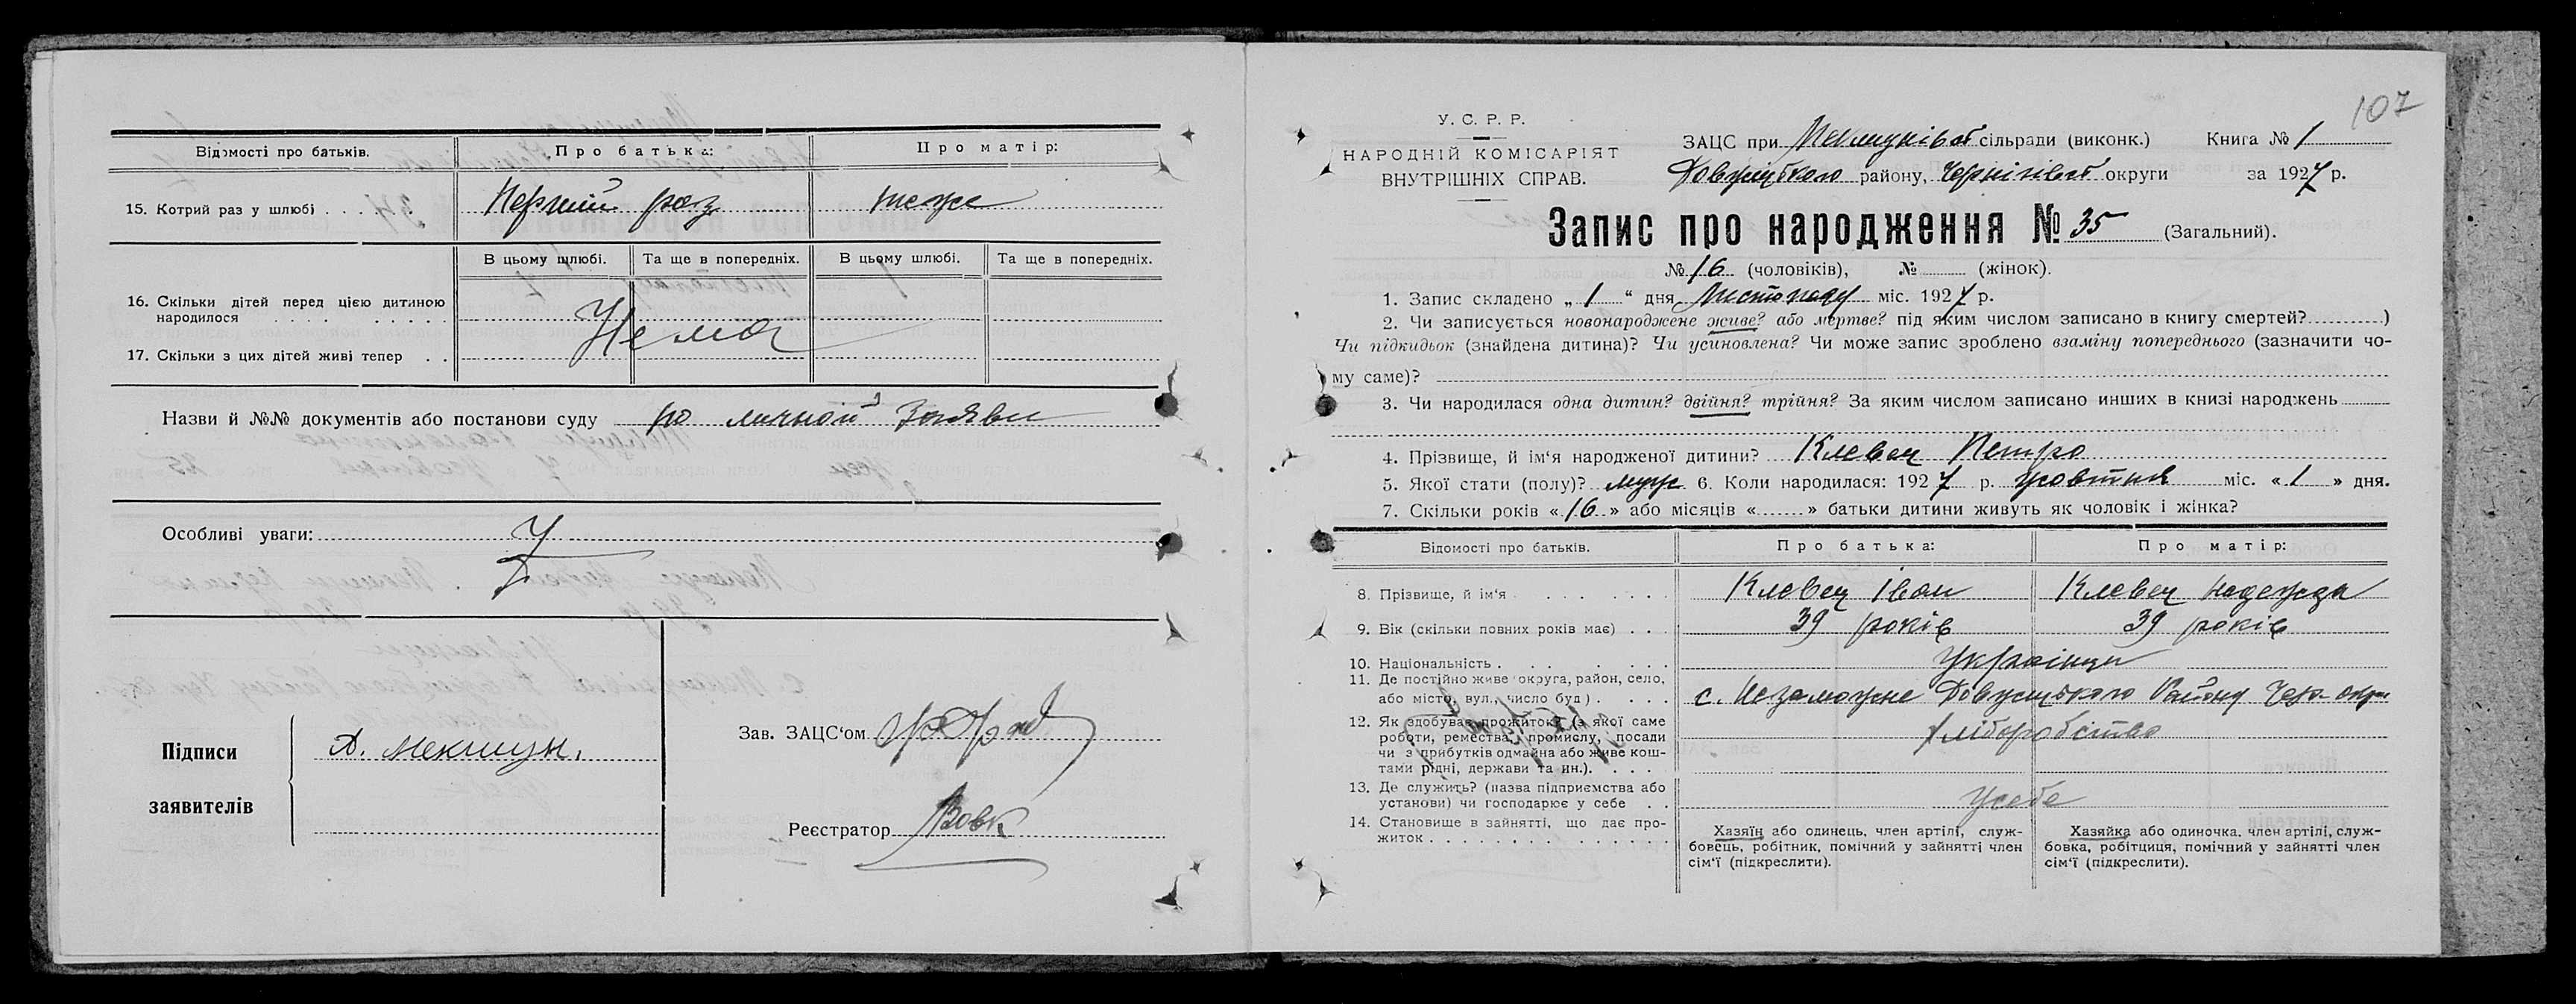 Відомості про батьків. Про батька: Про матір:
15. Котрий раз у шлюбі . . . . Перший раз теж
В цьому шлюбі. Та ще в попередніх. В цьому шлюбі. Та ще в попередніх.
16. Скільки дітей перед цією дитиною
народилося . . . . . . . . .
Нема
17. Скільки з цих дітей живі тепер . .
Назви й №№ документів або постанови суду по личной Заяви
Особливі уваги:
Підписи
заявителів
Зав. ЗАЦС'ом
Реєстратор Вовк
107
У. С. Р. Р.
НАРОДНІЙ КОМІСАРІЯТ
ВНУТРІШНІХ СПРАВ.
ЗАЦС при сільради (виконк.) Книга № 1
району, округи за 1927 р.
Запис про народження № 35 (Загальний).
№ 16 (чоловіків), № (жінок).
1. Запис складено „ 1 “ дня Листопаду міс. 1927 р.
2. Чи записується новонароджене живе? або мертве? під яким числом записано в книгу смертей? )
Чи підкидьок (знайдена дитина)? Чи усиновлена? Чи може запис зроблено взаміну попереднього (зазначити чо-
му саме)?
3. Чи народилася одна дитин? двійня? трійня? За яким числом записано инших в книзі народжень
4. Прізвище, й ім'я народженої дитини? Клевец Петро
5. Якої стати (полу)? муж. 6. Коли народилася: 1927 р. жовтня міс. « 1 » дня.
7. Скільки років « 16 » або місяців « » батьки дитини живуть як чоловік і жінка?
Відомості про батьків. Про батька: Про матір:
8. Прізвище, й ім'я . . . . . . . Клевец Іван Клевец Надежда
9. Вік (скільки повних років має) . . . 39 років 39 років
10. Національність . . . . . . . Українци
11. Де постійно живе округа, район, село,
або місто, вул., число буд) . . . . с. Незаможне Району
12. Як здобуває прожиток? (з якої саме
роботи, ремества, промислу, посади
чи з прибутків одмайна або живе кош-
тами рідні, держави та ин.). . . .
Хліборобство
13. Де служить? (назва підприємства або
установи) чи господарює у себе . . Усебе
14. Становище в зайнятті, що дає про-
житок . . . . . . . . . . . . . .
Хазяїн або одинець, член артілі, служ-
бовець, робітник, помічний у зайнятті член
сім'ї (підкреслити).
Хазяйка або одиночка, член артілі, служ-
бовка, робітниця, помічний у зайнятті член
сім'ї (підкреслити).